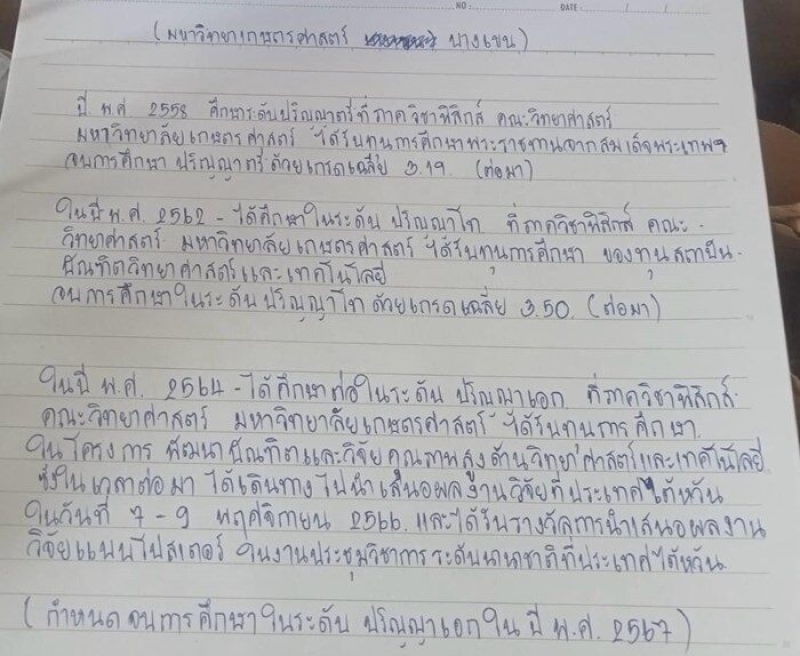 NO : DATE : / /
( มหาวิทยาเกษตรศาสตร์ บางเขน )
ปี พ.ศ 2558 ศึกษาระดับปริญญาตรีที่ภาควิชาฟิสิกส์ คณะวิทยาศาสตร์
มหาวิทยาลัยเกษตรศาสตร์ ได้รับทุนการศึกษาพระราชทานจากสมเด็จพระเทพฯ
จบการศึกษา ปริญญาตรี ด้วยเกรดเฉลี่ย 3.19. (ต่อมา)
ในปีพ.ศ. 2562 - ได้ศึกษาในระดับ ปริญญาโท ที่ภาควิชาฟิสิกส์ คณะ -
วิทยาศาสตร์ มหาวิทยาลัยเกษตรศาสตร์ ได้รับทุนการศึกษา ของทุนสถาบัน -
บัณฑิตวิทยาศาสตร์และเทคโนโลยี
จบการศึกษาในระดับปริญญาโท ด้วยเกรดเฉลี่ย 3.50. (ต่อมา)
ในปี พ.ศ. 2564 - ได้ศึกษาต่อในระดับ ปริญญาเอก ที่ภาควิชาฟิสิกส์
คณะวิทยาศาสตร์ มหาวิทยาลัยเกษตรศาสตร์ ได้รับทุนการศึกษา
ในโครงการ พัฒนาบัณฑิตและวิจัยคุณภาพสูงด้านวิทยาศาสตร์และเทคโนโลยี
ซึ่งในเวลาต่อมา ได้เดินทางไปนำเสนอผลงานวิจัยที่ประเทศไต้หวัน
ในวันที่ 7 - 9 พฤศจิกายน 2566 และได้รับรางวัลการนำเสนอผลงาน
วิจัยแบบโปสเตอร์ ในงานประชุมวิชาการระดับนานาชาติที่ประเทศไต้หวัน
( กำหนดจบการศึกษาในระดับ ปริญญาเอกใน ปี พ.ศ. 2567 )